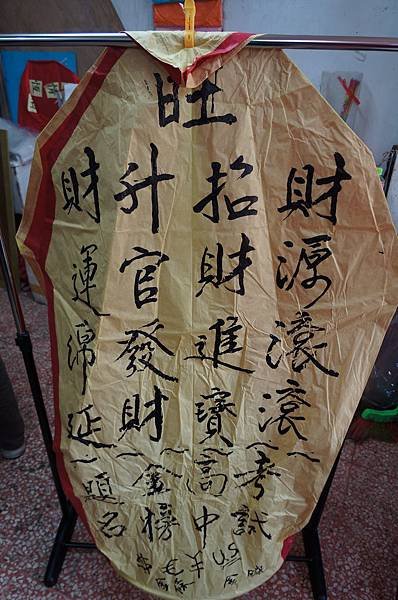 旺
財源滾滾~
招財進寶~
升官發財~
財運綿延~
考試
高中
金榜
題名